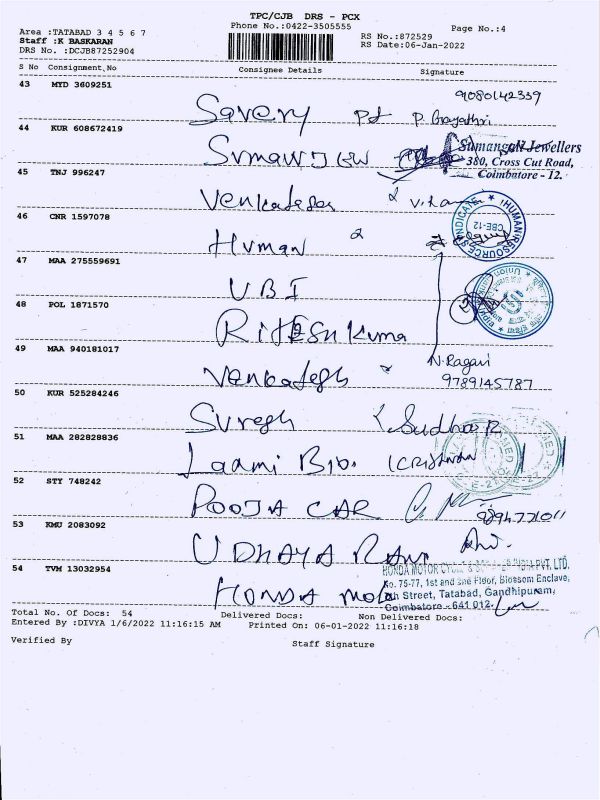 TPC/CJB DRS - PCX
Area :TATABAD 3 4 5 6 7 Phone No.:0422-3505555 Page No.:4
Staff :K BASKARAN RS No.:872529
DRS No. :DCJB87252904 RS Date:06-Jan-2022
S No Consignment.No Consignee Details Signature
43 MYD 3609251 9080142339
Savery P. Gayathri
44 KUR 608672419 Sumangali Jewellers
380, Cross Cut Road,
Coimbatore - 12.
45 TNJ 996247
Venkatesa
46 CNR 1597078 HUMAN RESOURCE SYNDICATE CBE-12
Human
47 MAA 275559691
UBI
48 POL 1871570 Union
Ritesh Kuma
49 MAA 940181017 N. Ragavi
Venkatesh 9789145787
50 KUR 525284246
Suresh Sudha R
51 MAA 282828836
Laxmi Bio.
52 STY 748242
POOJA CAR 9894771011
53 KMU 2083092
UDHAYA RANI
54 TVM 13032954 HONDA MOTOR CYCLE & INDIA PVT. LTD.
No. 75-77, 1st and 2nd Floor, Blossom Enclave,
HONDA MOTO Street, Tatabad, Gandhipuram,
Coimbatore - 641 012.
Total No. Of Docs: 54 Delivered Docs: Non Delivered Docs:
Entered By :DIVYA 1/6/2022 11:16:15 AM Printed On: 06-01-2022 11:16:18
Verified By Staff Signature